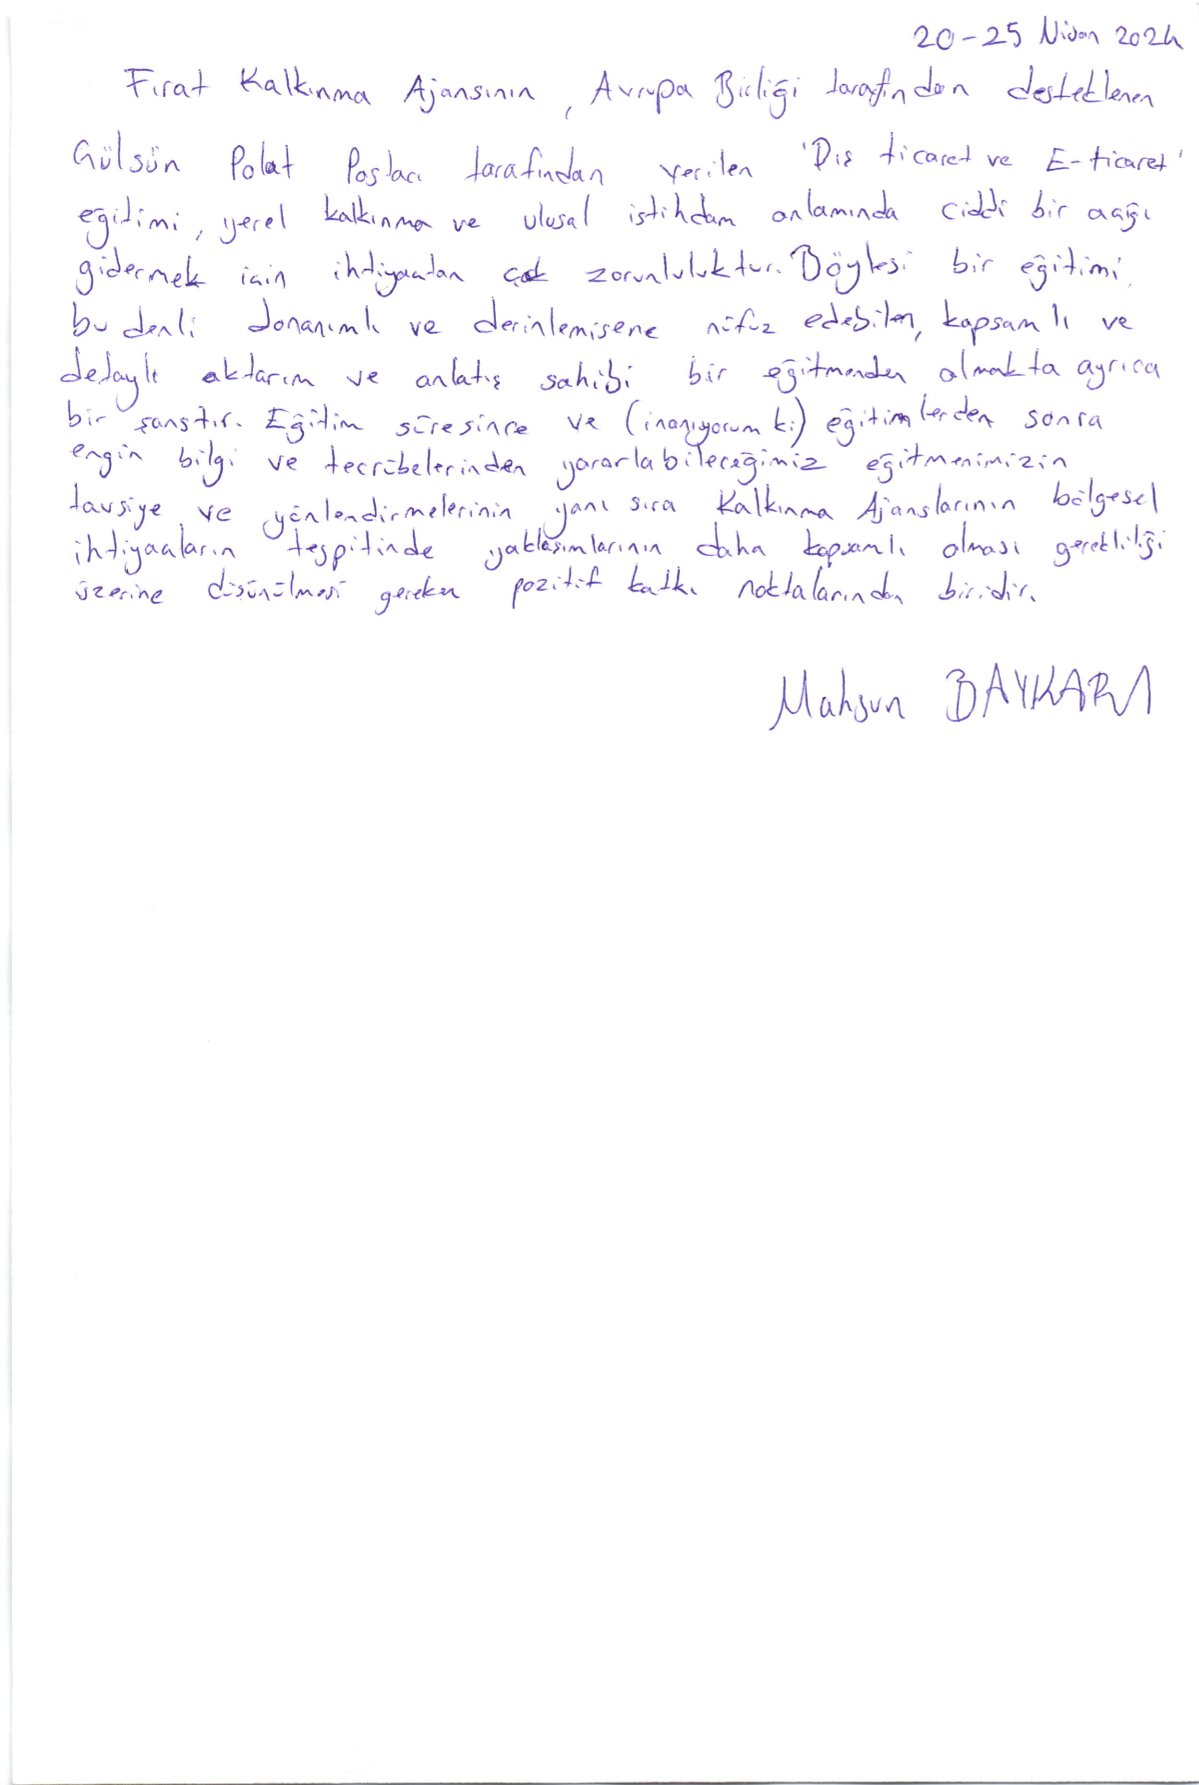 20-25 Nisan 2024
Fırat Kalkınma Ajansının, Avrupa Birliği tarafından desteklenen
Gülsün Polat Postacı tarafından verilen 'Dış ticaret ve E-ticaret'
eğitimi, yerel kalkınma ve ulusal istihdam anlamında ciddi bir açığı
gidermek için ihtiyaçtan çok zorunluluktur. Böylesi bir eğitimi
bu denli donanımlı ve derinlemisene nüfuz edebilen, kapsamlı ve
detaylı aktarım ve anlatış sahibi bir eğitmenden almakta ayrıca
bir şanstır. Eğitim süresince ve (inanıyorum ki) eğitimlerden sonra
engin bilgi ve tecrübelerinden yararlabileceğimiz eğitmenimizin
tavsiye ve yönlendirmelerinin yanı sıra Kalkınma Ajanslarının bölgesel
ihtiyaçların tespitinde yaklaşımlarının daha kapsamlı olması gerekliliği
üzerine düşünülmesi gereken pozitif katkı noktalarından biridir.
Mahsun BAYKARA